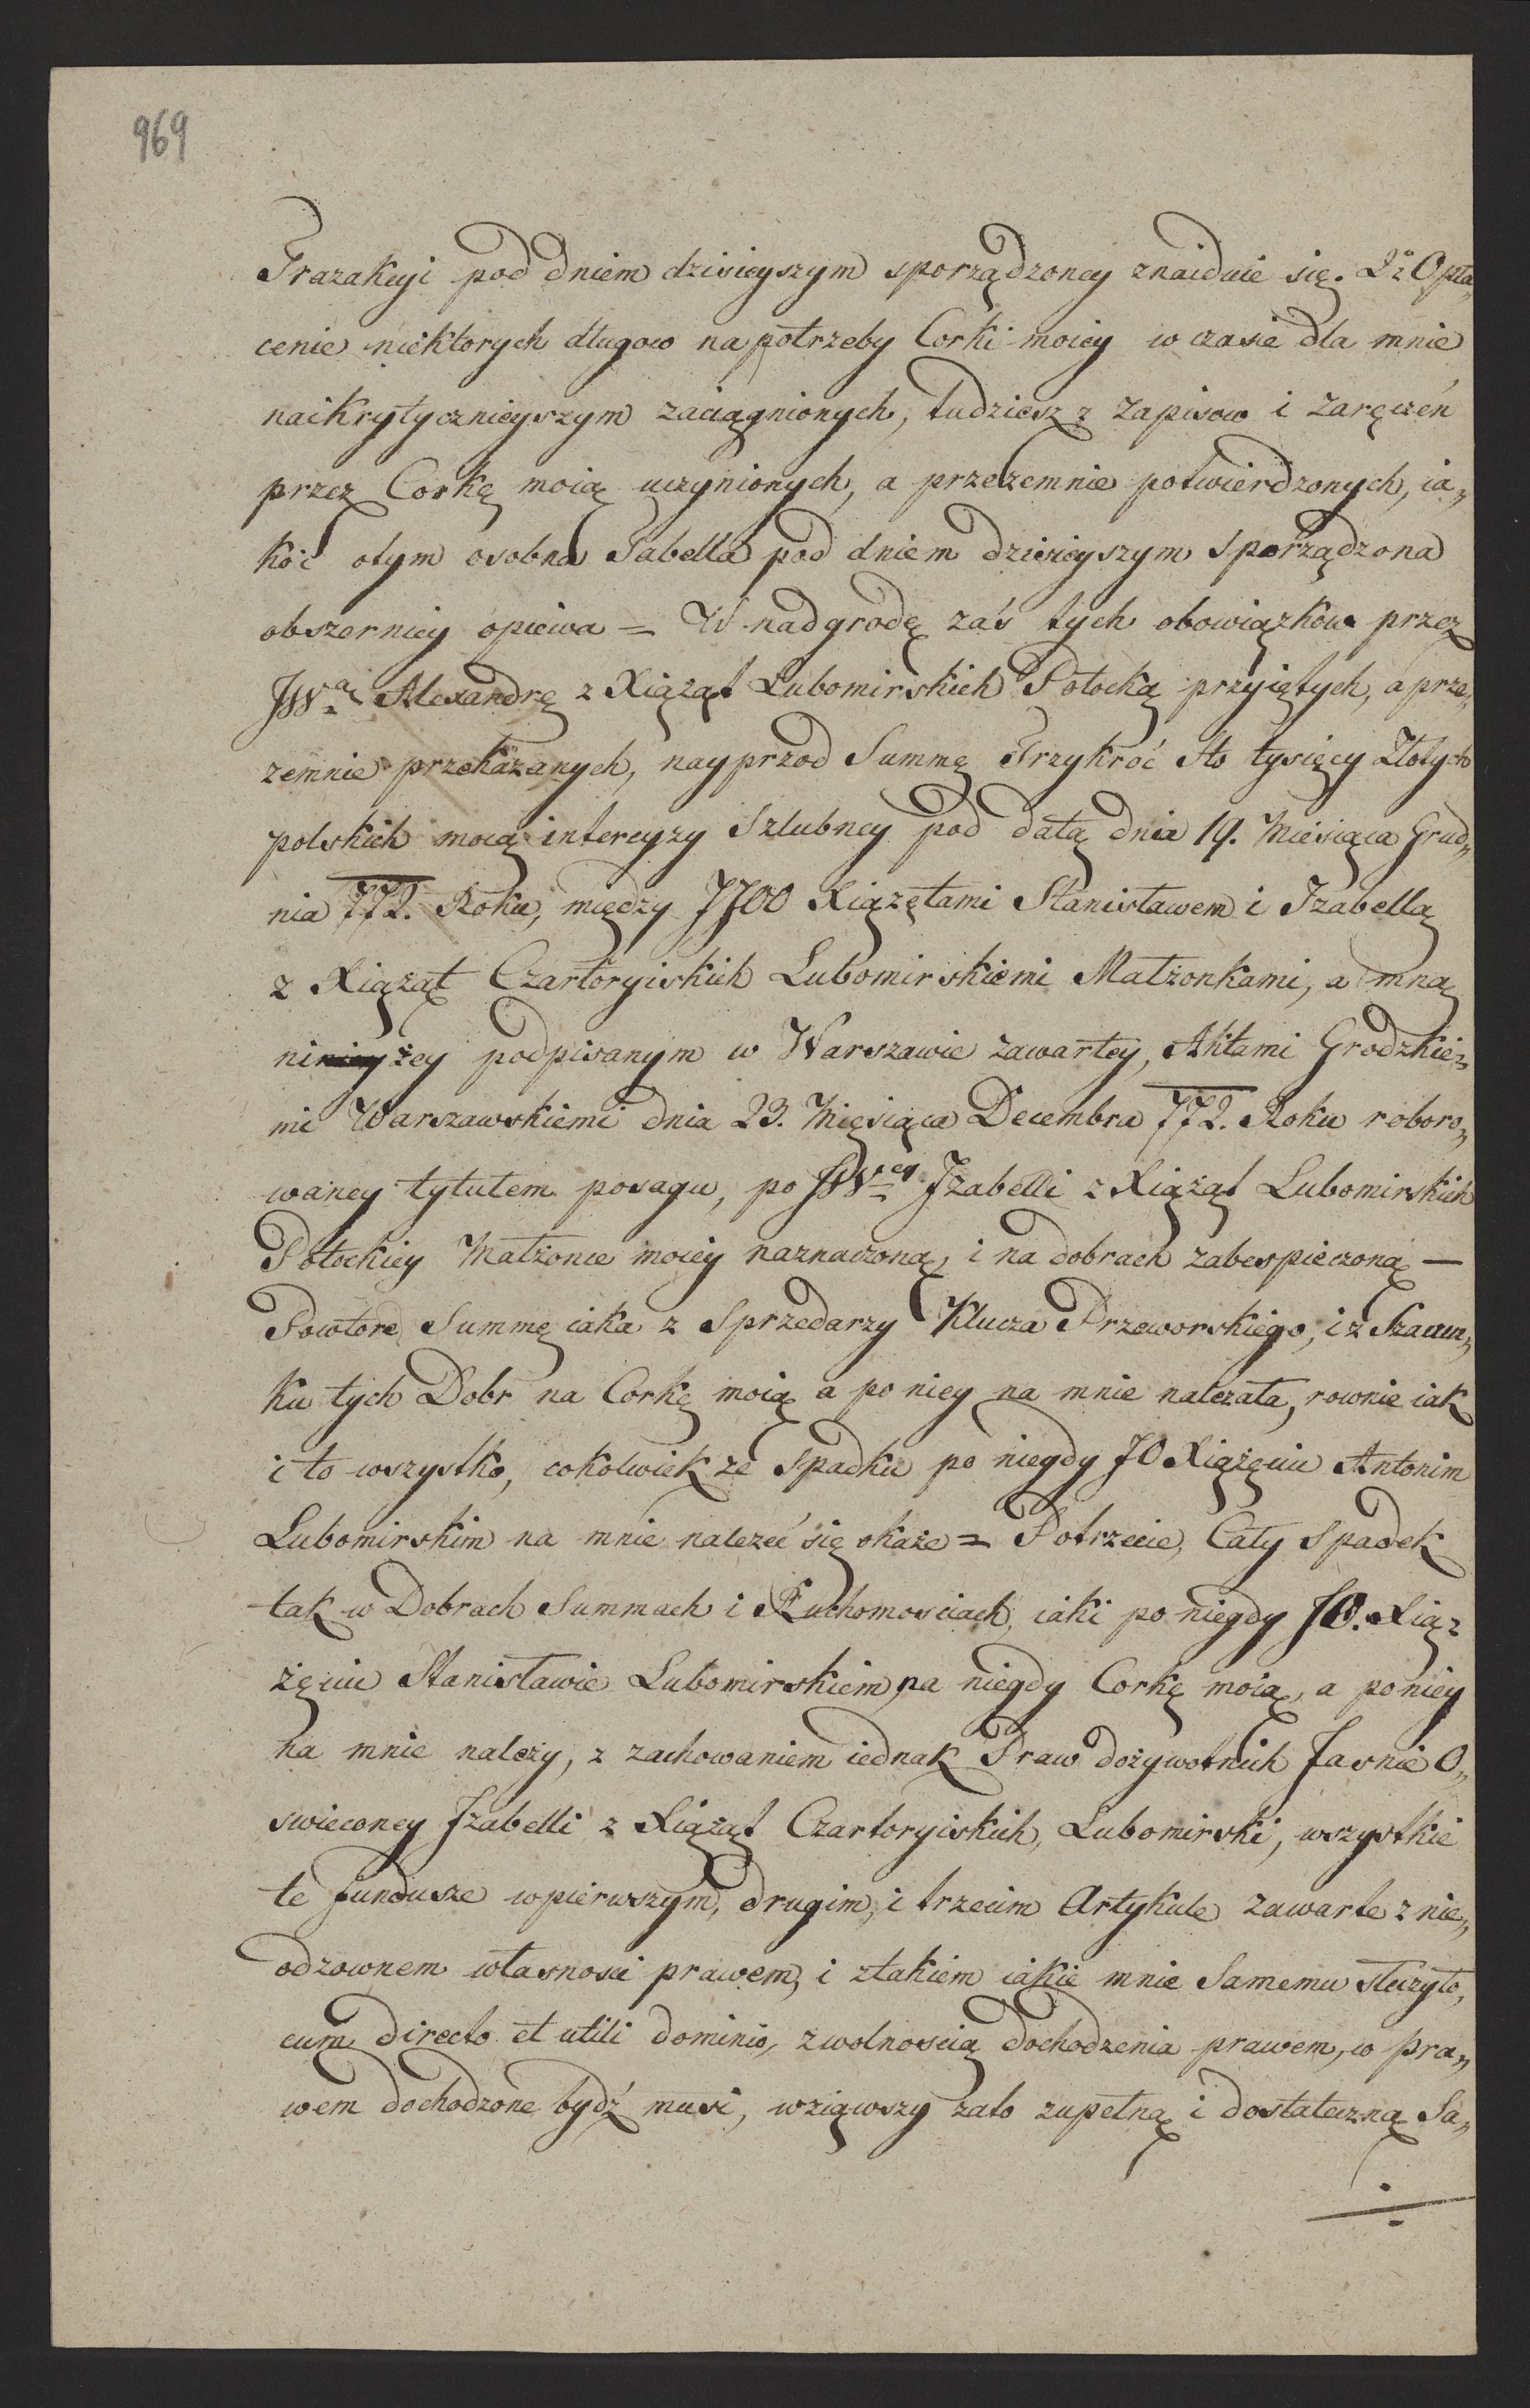 969
Trazakcyi pod dniem dzisieyszym sporządzoney znaiduie się. 2º Opła„
cenie niektorych długow na potrzeby Corki moiey w czasie dla mnie
naikrytycznieyszym zaciągnionych, tudziesz z zapisow i zaręczeń
przez Corkę moią uczynionych, a przezemnie potwierdzonych, ia„
koż otym osobna Tabella pod dniem dzisieyszym sporządzona
obszerniey opiewa = W nadgrodę zaś tych obowiązkow przez
JWą Alexandrę z Xiążąt Lubomirskich Potocką przyiętych, a prze„
zemnie przekazanych, nayprzod Summę Trzykroć sto tysięcy Złotych
polskich mocą intercyzy Szlubney pod datą dnia 19. Miesiąca Grud„
nia 772. Roku, między JJOO Xiążętami Stanisławem i Izabellą
z Xiążąt Czartoryiskich Lubomirskiemi Małżonkami, a mną
niżey podpisanym w Warszawie zawartey, Aktami Grodzkie„
mi Warszawskiemi dnia 23. Miesiąca Decembra 772. Roku roboro„
waney tytułem posagu, po JWney Izabelli z Xiążąt Lubomirskich
Potockiey Małżonce moiey naznaczoną, i na dobrach zabespieczoną —
Powtore Summę iaka z Sprzedarzy Klucza Przeworskiego, i z Szacun„
ku tych Dobr na Corkę moią a po niey na mnie należała, rownie iak
i to wszystko, cokolwiek ze Spadku po niegdy JO Xiążęciu Antonim
Lubomirskim na mnie należeć się okaże = Potrzecie, Cały Spadek
tak w Dobrach Summach i Ruchomosciach, iaki po niegdy JO. Xią„
żęciu Stanisławie Lubomirskiem na niegdy Corkę moią, a po niey
na mnie należy, z zachowaniem iednak Praw dożywotnich Jasnie O„
swieconey Izabelli z Xiążąt Czartoryiskich, Lubomirski, wszystkie
te fundusze w pierwszym, drugim, i trzecim Artykule zawarte z nie„
odzownem własnosci prawem, i z takiem iakie mnie Samemu służyło,
cum directo et utili dominio, z wolnoscią dochodzenia prawem, co pra„
wem dochodzone bydź musi, wziąwszy zato zupełną i dostateczną Sa„